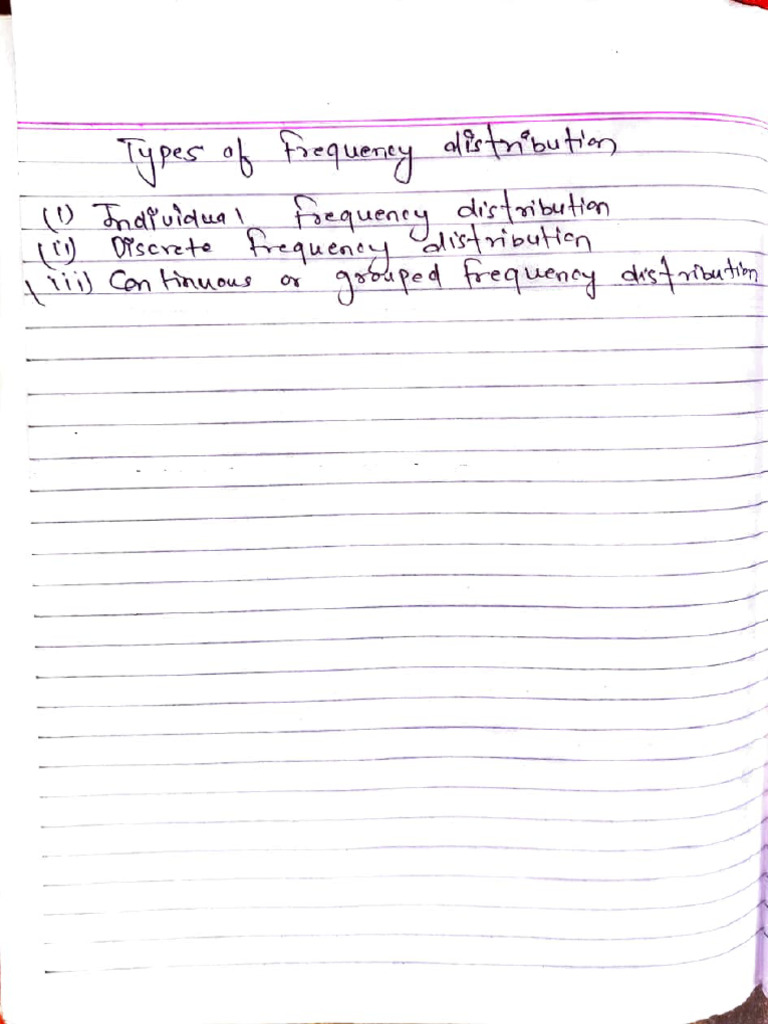 Types of frequency distribution
(i) Individual frequency distribution
(ii) Discrete frequency distribution
(iii) Continuous or grouped frequency distribution